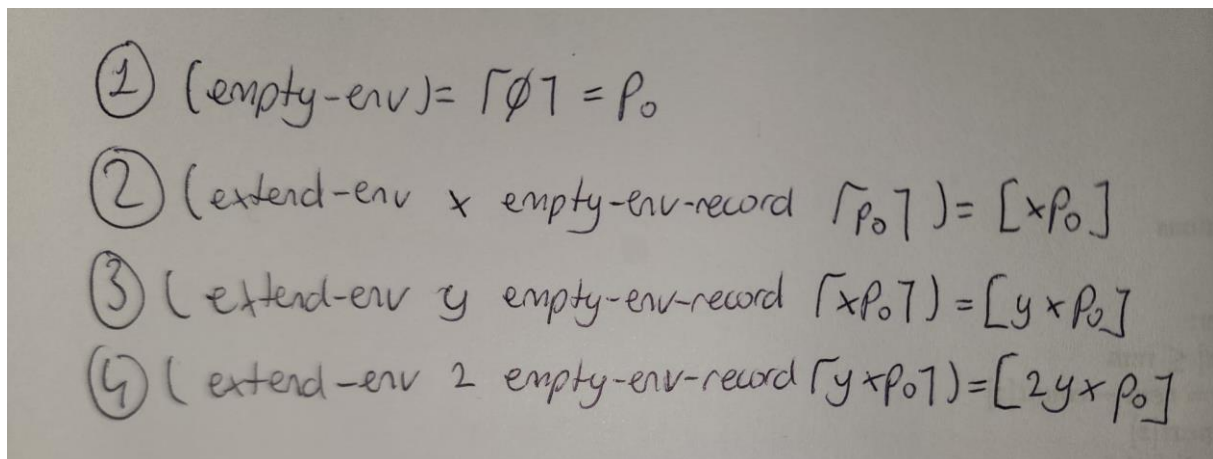 ① (empty-env)= ⌈∅⌉ = ρ₀
② (extend-env x empty-env-record ⌈ρ₀⌉ )= [xρ₀]
③ ( extend-env y empty-env-record ⌈xρ₀⌉) = [y x ρ₀]
④ ( extend-env 2 empty-env-record ⌈y x ρ₀⌉)=[2y x ρ₀]